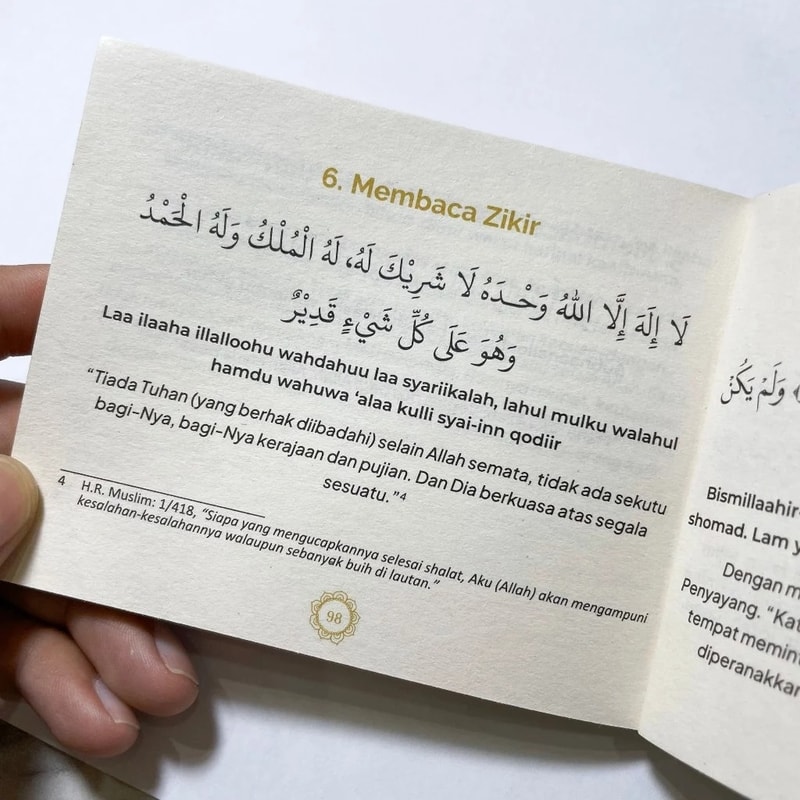 6. Membaca Zikir
لَا إِلَهَ إِلَّا اللهُ وَحْدَهُ لَا شَرِيْكَ لَهُ، لَهُ الْمُلْكُ وَلَهُ الْحَمْدُ
وَهُوَ عَلَى كُلِّ شَيْءٍ قَدِيْرٌ
Laa ilaaha illalloohu wahdahuu laa syariikalah, lahul mulku walahul
hamdu wahuwa ‘alaa kulli syai-inn qodiir
“Tiada Tuhan (yang berhak diibadahi) selain Allah semata, tidak ada sekutu
bagi-Nya, bagi-Nya kerajaan dan pujian. Dan Dia berkuasa atas segala
sesuatu.”4
4 H.R. Muslim: 1/418, “Siapa yang mengucapkannya selesai shalat, Aku (Allah) akan mengampuni
kesalahan-kesalahannya walaupun sebanyak buih di lautan.”
98
وَلَمْ يَكُنْ
Bismillaahir
shomad. Lam y
Dengan m
Penyayang. “Kat
tempat memint
diperanakkan